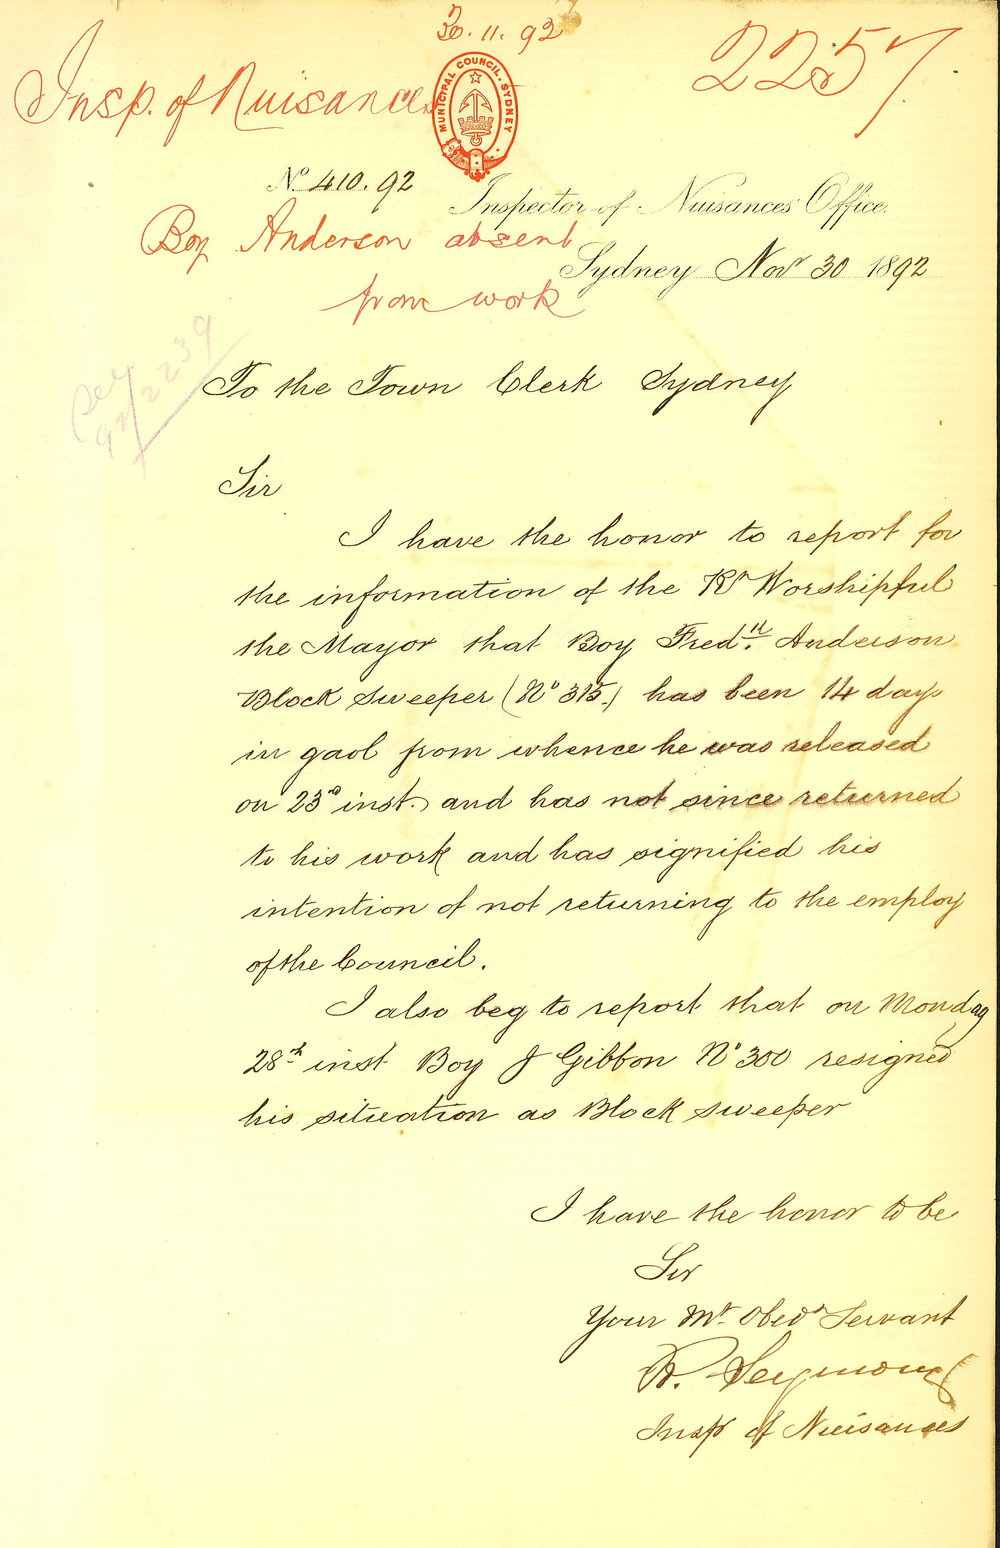 30.11.92
2257
Insp. of Nuisances
MUNICIPAL COUNCIL. SYDNEY
No. 410. 92
Inspector of Nuisances Office.
Boy Anderson absent
Sydney Novr 30 1892
from work
92/2239
To the Town Clerk Sydney
Sir
I have the honor to report for
the information of the Rt Worshipful
the Mayor that Boy Fredk. Anderson
Block Sweeper (No 315.) has been 14 days
in gaol from whence he was released
on 23rd inst. and has not since returned
to his work and has signified his
intention of not returning to the employ
of the Council.
I also beg to report that on Monday
28th inst Boy J Gibbon No 300 resigned
his situation as Block sweeper
I have the honor to be
Sir
Your Mt. Obedt Servant
R. Seymour
Inspr of Nuisances